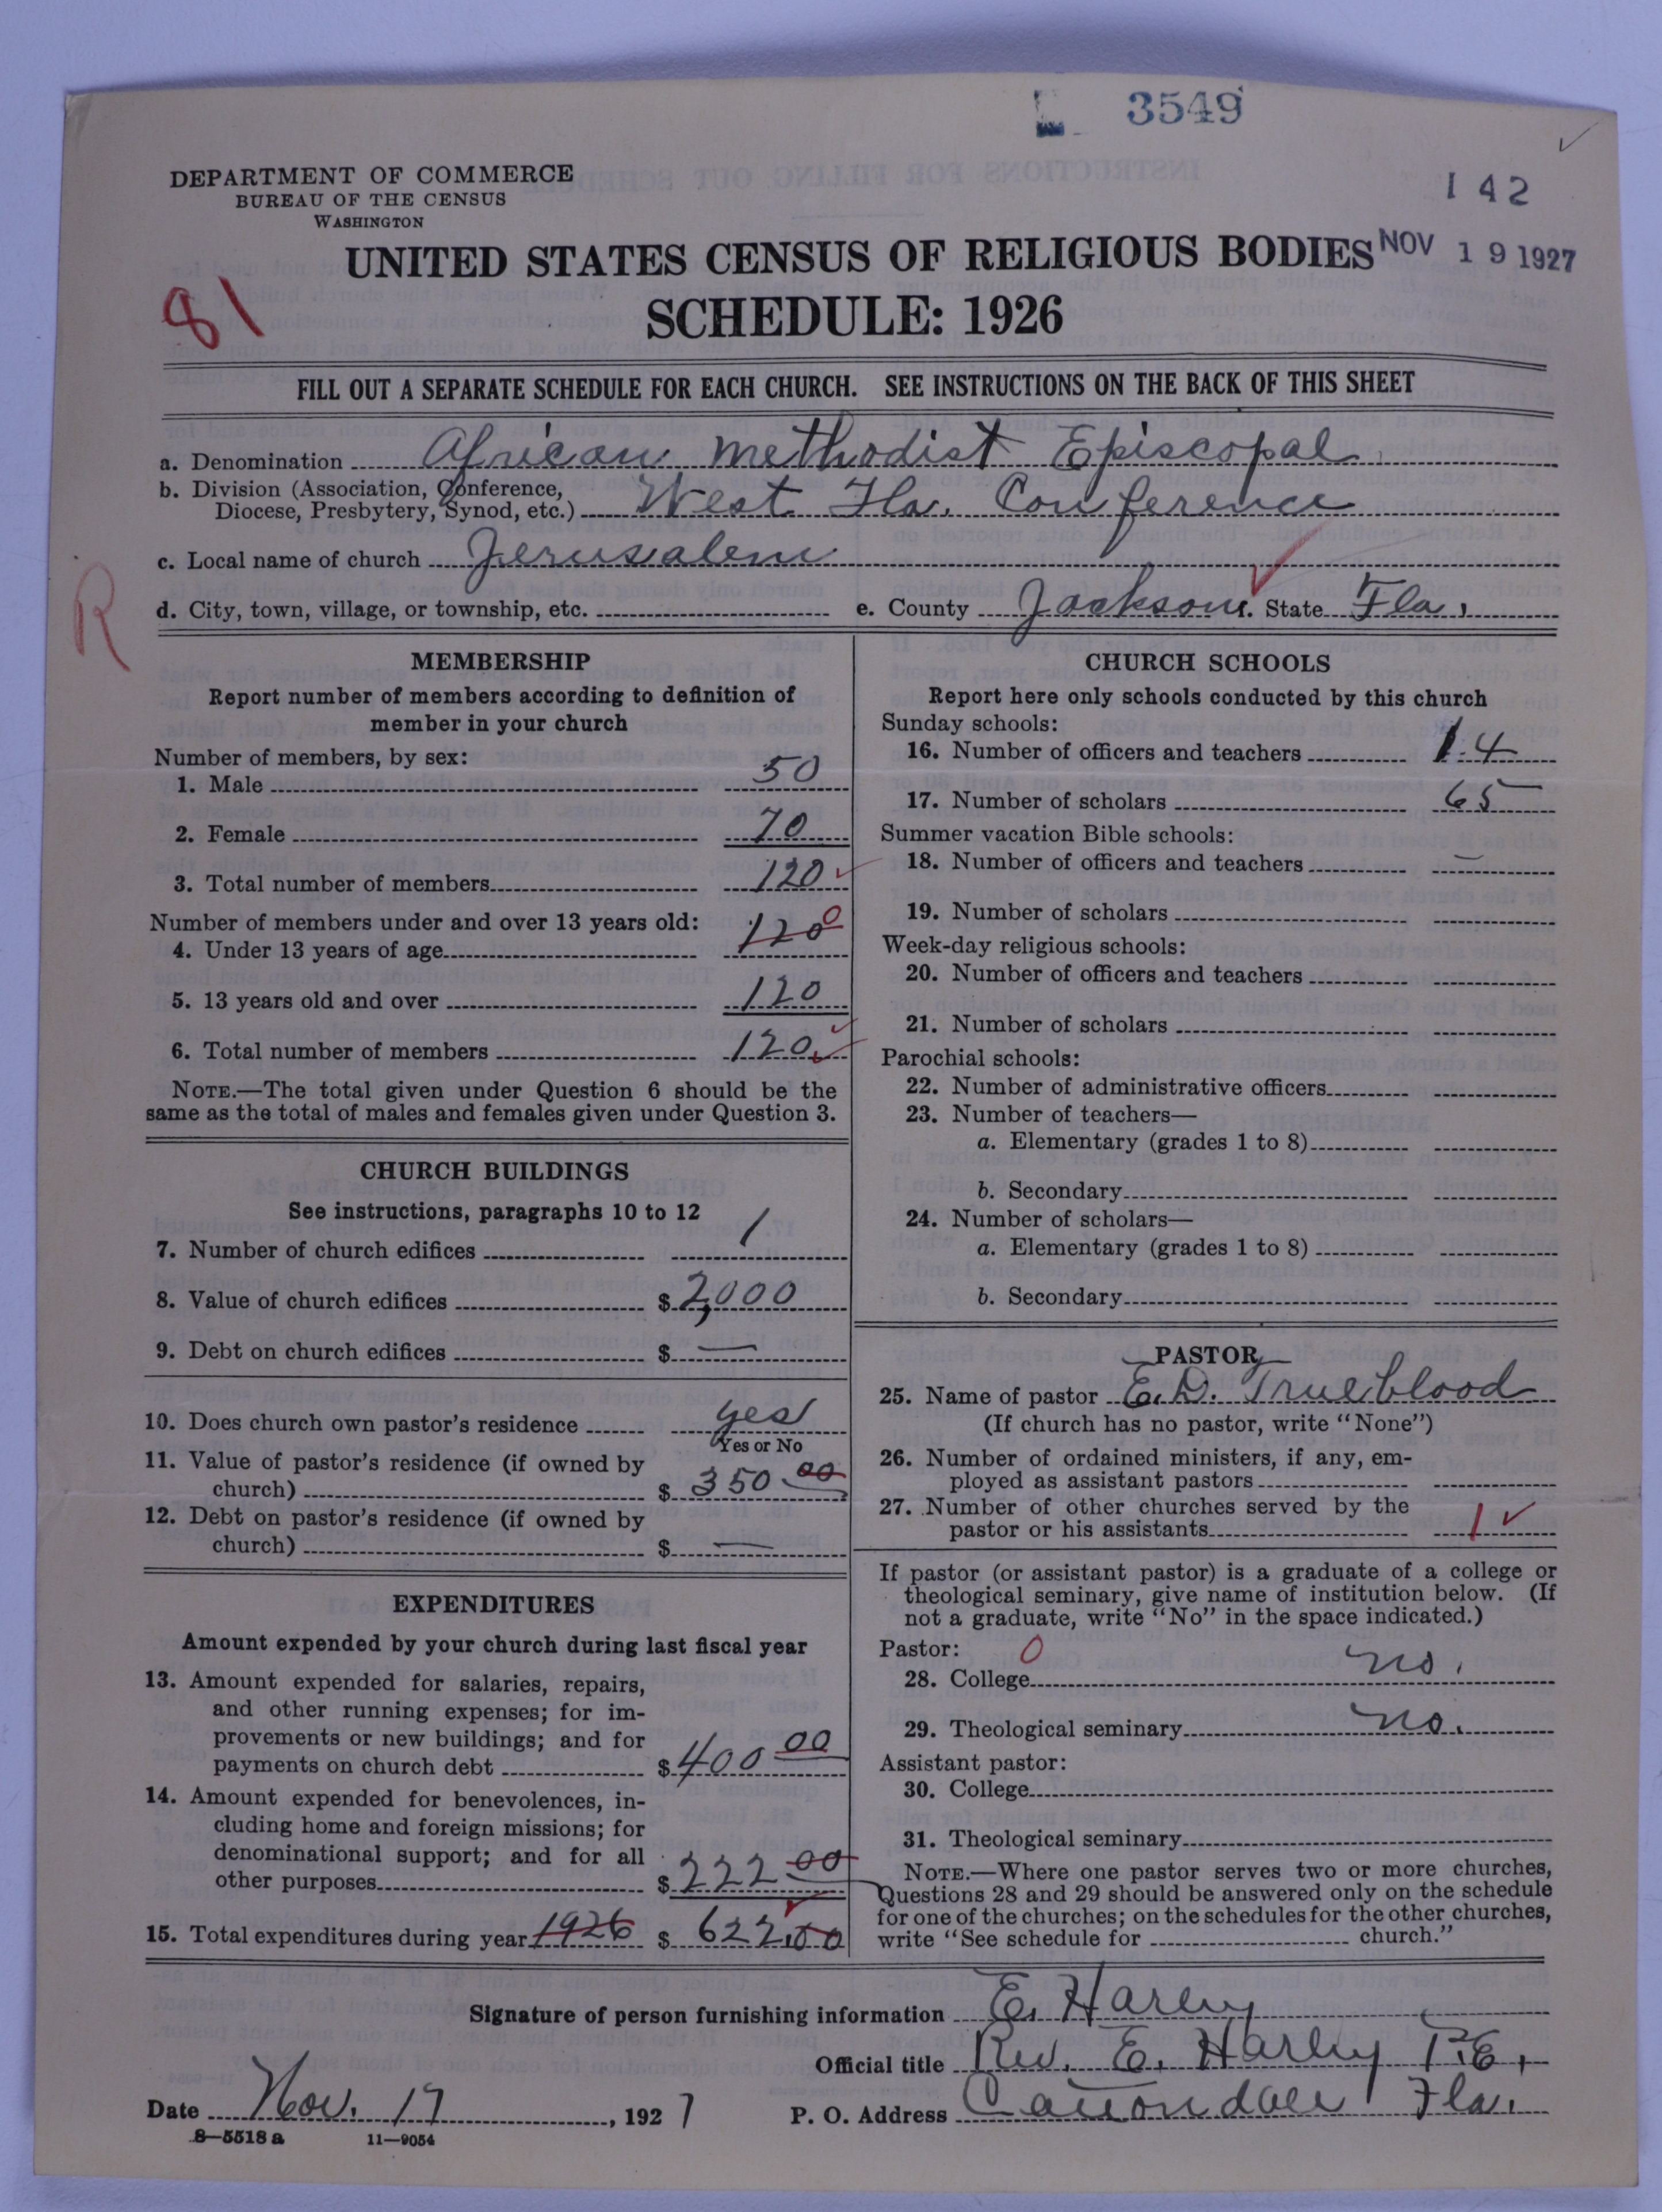 3549
142
DEPARTMENT OF COMMERCE
BUREAU OF THE CENSUS
WASHINGTON
UNITED STATES CENSUS OF RELIGIOUS BODIES NOV 19 1927
81
SCHEDULE: 1926
FILL OUT A SEPARATE SCHEDULE FOR EACH CHURCH. SEE INSTRUCTIONS ON THE BACK OF THIS SHEET
a. Denomination African Methodist Episcopal
b. Division (Association, Conference,
Diocese, Presbytery, Synod, etc.) West Fla. Conference
c. Local name of church Jerusalem
R
d. City, town, village, or township, etc. e. County Jackson f. State Fla.
MEMBERSHIP
Report number of members according to definition of
member in your church
Number of members, by sex:
1. Male 50
2. Female 70
3. Total number of members 120
Number of members under and over 13 years old:
4. Under 13 years of age 120 0
5. 13 years old and over 120
6. Total number of members 120
NOTE.—The total given under Question 6 should be the
same as the total of males and females given under Question 3.
CHURCH BUILDINGS
See instructions, paragraphs 10 to 12
7. Number of church edifices 1
8. Value of church edifices $ 2,000
9. Debt on church edifices $ —
10. Does church own pastor's residence yes
Yes or No
11. Value of pastor's residence (if owned by
church) $ 350 00
12. Debt on pastor's residence (if owned by
church) $ —
EXPENDITURES
Amount expended by your church during last fiscal year
13. Amount expended for salaries, repairs,
and other running expenses; for im-
provements or new buildings; and for
payments on church debt $ 400 00
14. Amount expended for benevolences, in-
cluding home and foreign missions; for
denominational support; and for all
other purposes $ 222 00
15. Total expenditures during year 1926 $ 622.00
CHURCH SCHOOLS
Report here only schools conducted by this church
Sunday schools:
16. Number of officers and teachers 14
17. Number of scholars 65
Summer vacation Bible schools:
18. Number of officers and teachers —
19. Number of scholars
Week-day religious schools:
20. Number of officers and teachers
21. Number of scholars
Parochial schools:
22. Number of administrative officers
23. Number of teachers—
a. Elementary (grades 1 to 8)
b. Secondary
24. Number of scholars—
a. Elementary (grades 1 to 8)
b. Secondary
PASTOR
25. Name of pastor E. D. Trueblood
(If church has no pastor, write "None")
26. Number of ordained ministers, if any, em-
ployed as assistant pastors
27. Number of other churches served by the
pastor or his assistants 1
If pastor (or assistant pastor) is a graduate of a college or
theological seminary, give name of institution below. (If
not a graduate, write "No" in the space indicated.)
Pastor: 0
28. College no.
29. Theological seminary no.
Assistant pastor:
30. College
31. Theological seminary
NOTE.—Where one pastor serves two or more churches,
Questions 28 and 29 should be answered only on the schedule
for one of the churches; on the schedules for the other churches,
write "See schedule for church."
Signature of person furnishing information E. Harley
Official title Rev. E. Harley P.E.
Date Nov. 17, 1927 P. O. Address Fla.
8—5518 a 11—9054